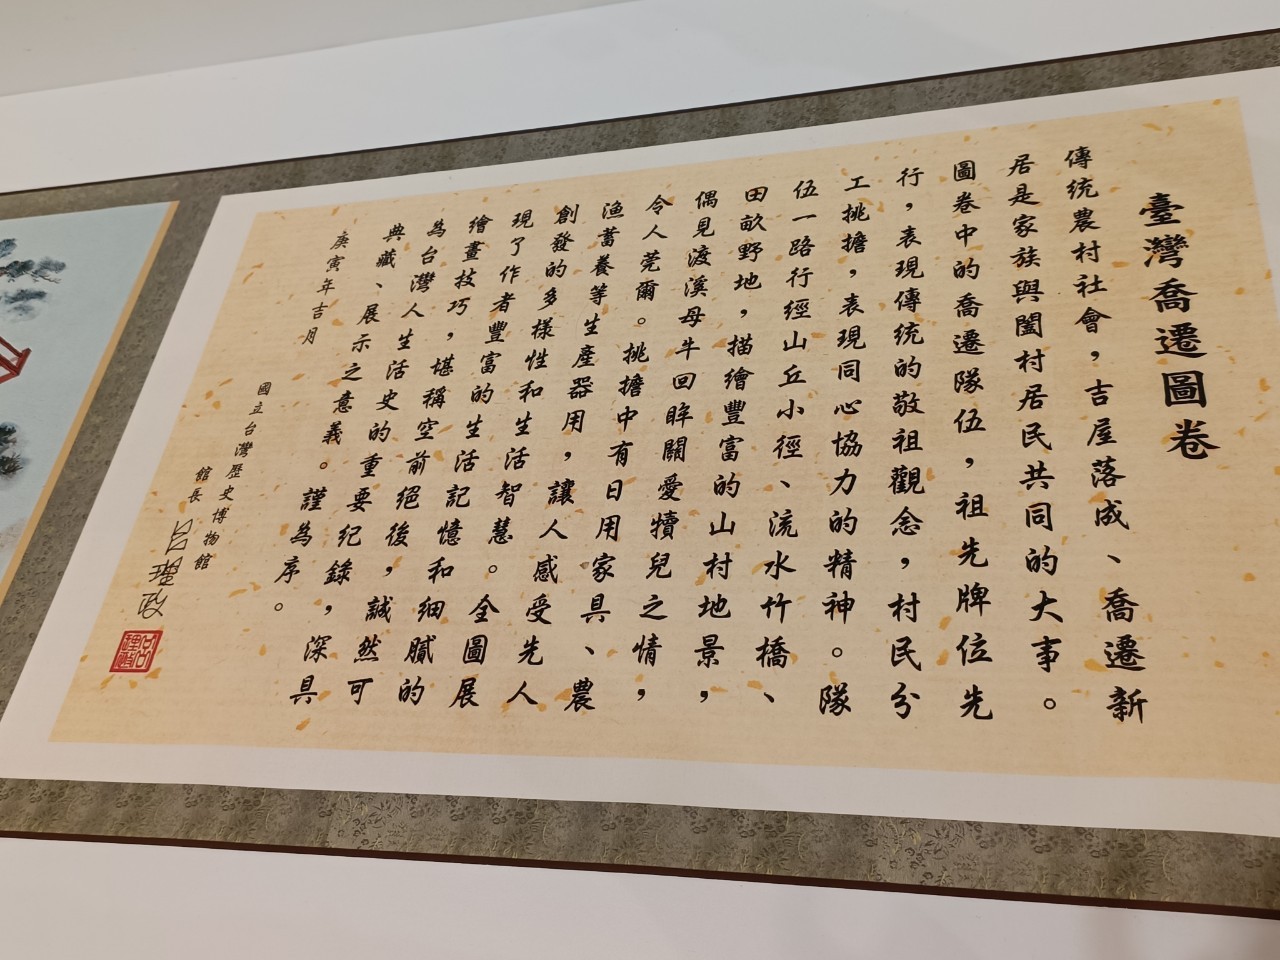 臺灣喬遷圖卷
傳統農村社會，吉屋落成、喬遷新
居是家族與闔村居民共同的大事。
圖卷中的喬遷隊伍，祖先牌位先
行，表現傳統的敬祖觀念，村民分
工挑擔，表現同心協力的精神。隊
伍一路行經山丘小徑、流水竹橋、
田畝野地，描繪豐富的山村地景，
偶見渡溪母牛回眸關愛犢兒之情，
令人莞爾。挑擔中有日用家具、農
漁蓄養等生產器用，讓人感受先人
創發的多樣性和生活智慧。全圖展
現了作者豐富的生活記憶和細膩的
繪畫技巧，堪稱空前絕後，誠然可
為台灣人生活史的重要紀錄，深具
典藏、展示之意義。謹為序。
庚寅年吉月
國立台灣歷史博物館
館長 呂理政